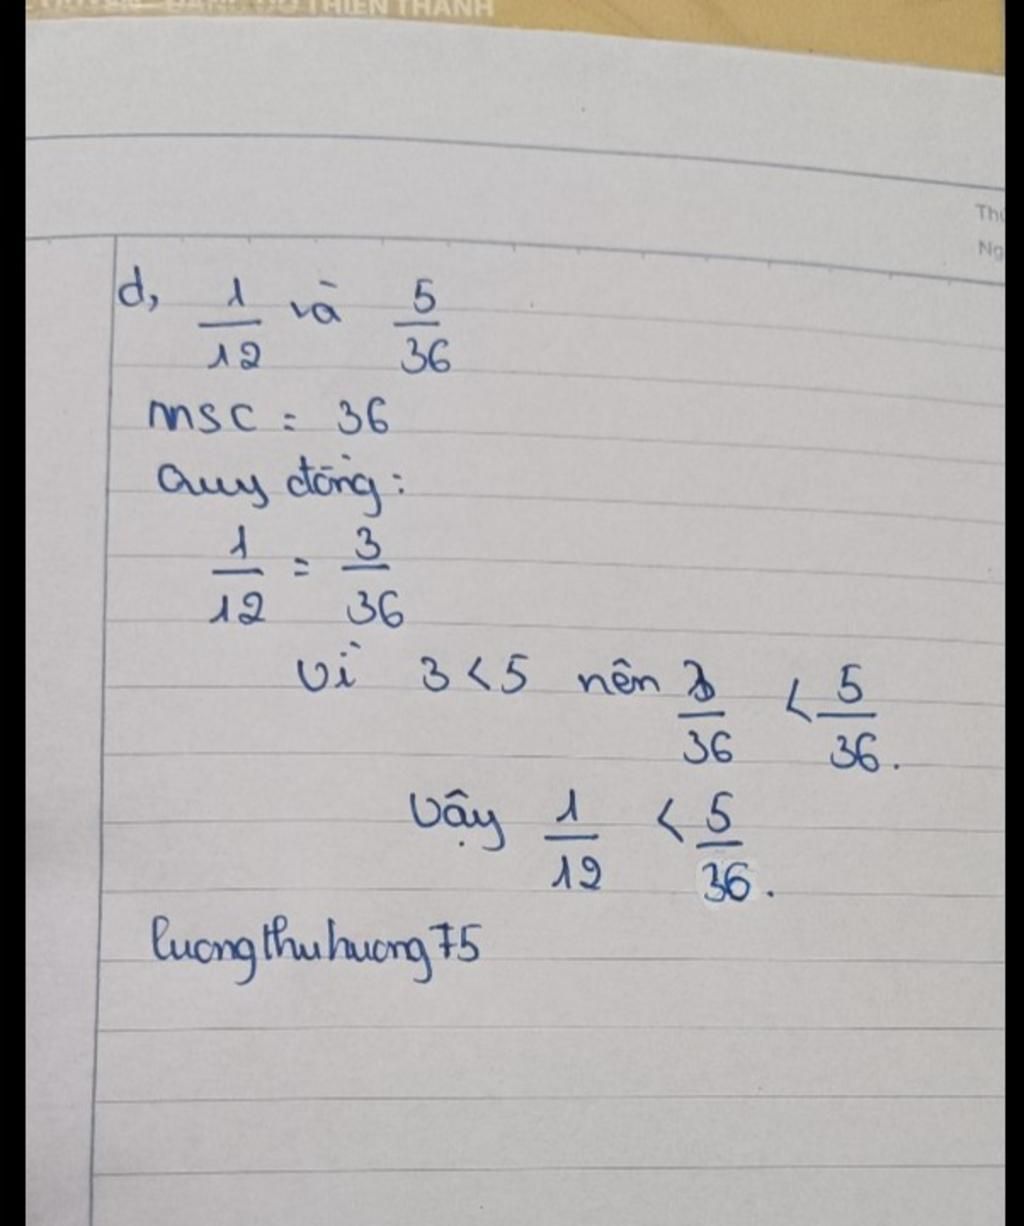 THIEN THANH
d, 1/12 và 5/36
MSC = 36
Quy đồng:
1/12 = 3/36
Vì 3 < 5 nên 3/36 < 5/36.
Vậy 1/12 < 5/36.
luongthuhuong75